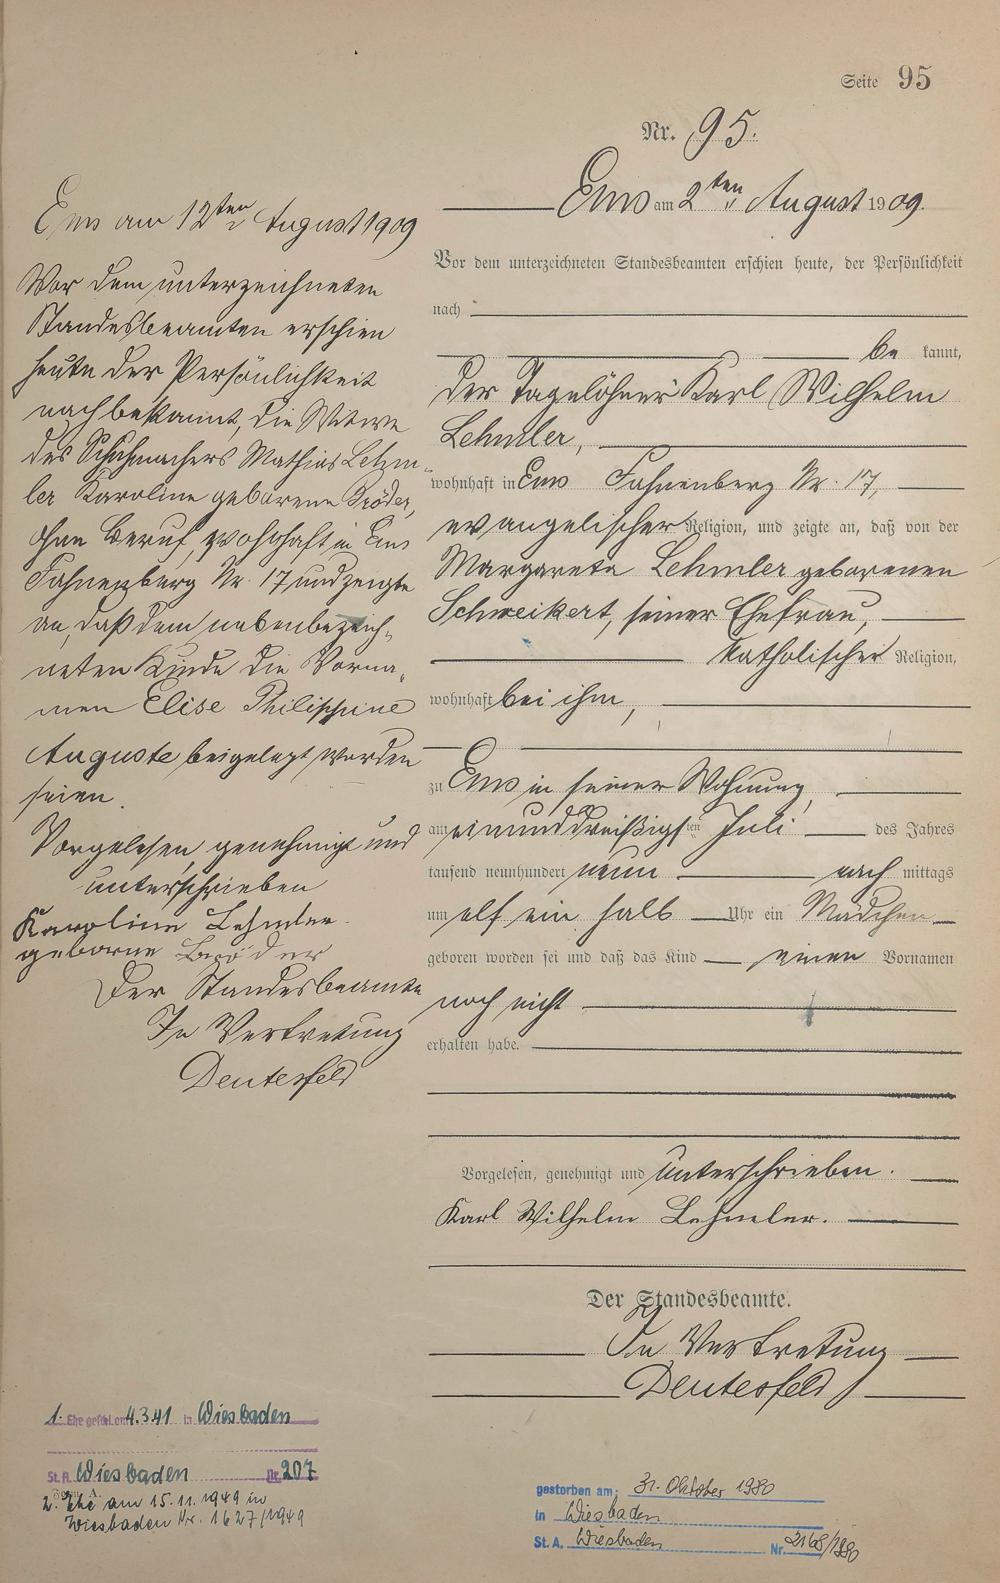 Seite 95
Nr. 95.
Ems am 2ten August 1909.
Vor dem unterzeichneten Standesbeamten erschien heute, der Persönlichkeit
nach
be kannt,
der Tagelöhner Karl Wilhelm
Lehmler,
wohnhaft in Ems Fahnenberg Nr. 17,
evangelischer Religion, und zeigte an, daß von der
Margareta Lehmler geborenen
Schweikert, seiner Ehefrau,
katholischer Religion,
wohnhaft bei ihm,
zu Ems in seiner Wohnung,
am einunddreißigsten Juli des Jahres
tausend neunhundert neun nach mittags
um elf ein halb Uhr ein Mädchen
geboren worden sei und daß das Kind einen Vornamen
noch nicht
erhalten habe.
Vorgelesen, genehmigt und unterschrieben.
Karl Wilhelm Lehmler.
Der Standesbeamte.
In Vertretung
Deutesfeld
Ems am 12ten August 1909
Vor dem unterzeichneten
Standesbeamten erschien
heute der Persönlichkeit
nach bekannt, die Witwe
des Schuhmachers Mathias Lehm-
ler Karoline geborene Bröder,
ohne Beruf, wohnhaft in Ems
Fahnenberg Nr. 17 und zeigte
an, daß dem nebenbezeich-
neten Kinde die Vorna-
men Elise Philippine
Auguste beigelegt worden
seien.
Vorgelesen, genehmigt und
unterschrieben
Karoline Lehmler
geborne Bröder
Der Standesbeamte
In Vertretung
Deutesfeld
1. Ehe geschl. am 4.3.41 in Wiesbaden
St. A. Wiesbaden Nr. 207
2. Ehe am 15.11.1949 in
Wiesbaden Nr. 1627/1949
gestorben am: 31. Oktober 1980
in Wiesbaden
St. A. Wiesbaden Nr. 2168/1980